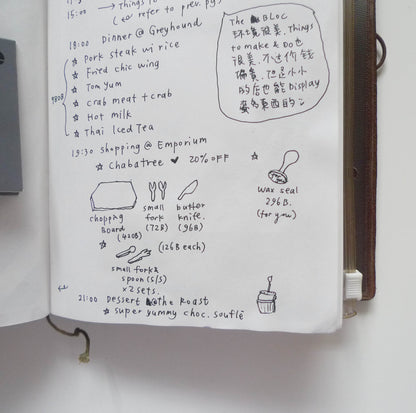 15:00
→ Things to
(↩ refer to prev. pg)
18:00 Dinner @ Greyhound
★ Pork steak w/ rice
★ Fried chic wing
★ Tom yum
★ Crab meat + crab
★ Hot milk
★ Thai Iced Tea
The BLOC
环境很美. Things
to make & Do也
很美. 不过价钱
偏贵. 但是小小
的店也能Display
19:30 Shopping @ Emporium
★ Chabatree ♥ 20% OFF
chopping
Board
(420B)
small
fork
(72B)
butter
knife.
(96B)
wax seal
296B.
(for you)
(126B each)
small fork &
spoon (S/S)
x2 sets.
21:00 Dessert @ The Roast
★ super yummy choc. souflé